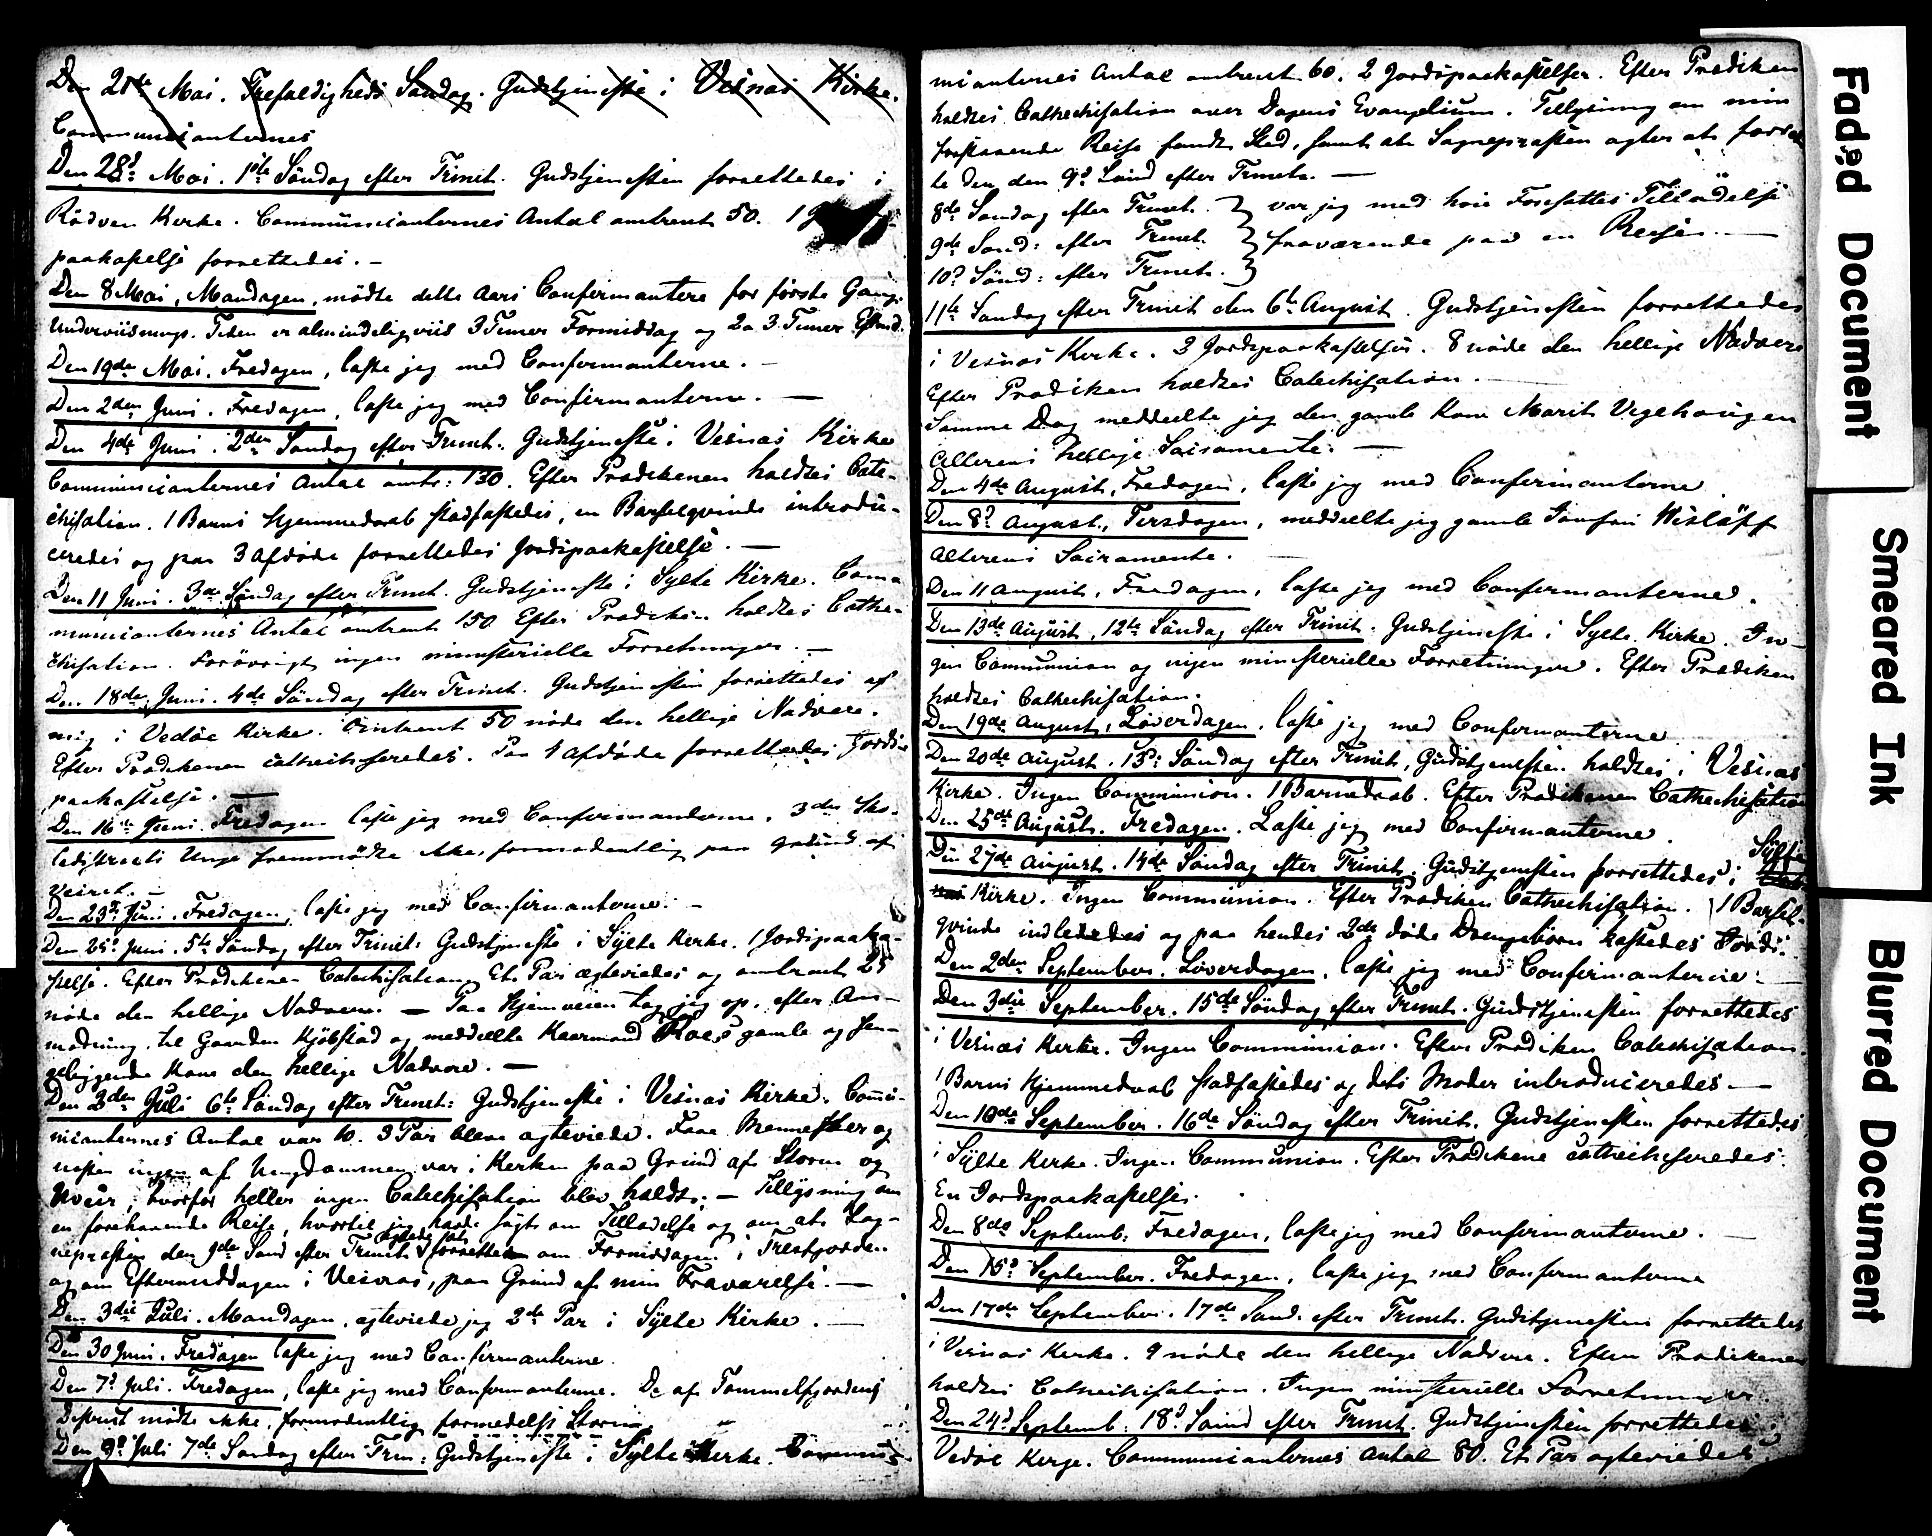 Den 21de Mai. Trefaldigheds Søndag. Gudstjeneste i Vesnæs Kirke.
Communicanternes
Den 28d Mai. 1ste Söndag efter Trinit. Gudstjenesten forrettedes i
Rødven Kirke. Communicanternes Antal omtrent 50. 1
paakastelse forrettedes. -
Den 8 Mai, Mandagen, mødte dette Aars Confirmantere for første Gang.
Underviisnings Tiden er almindeligviis 3 Timer Formiddag og 2 a 3 Timer Eftmd.
Den 19de Mai. Fredagen, læste jeg med Confirmanterne. -
Den 2den Juni. Fredagen, læste jeg med Confirmanterne. —
Den 4de Juni. 2den Søndag efter Trinit. Gudstjeneste i Vesnæs Kirke
Communicanternes Antal omtr: 130. Efter Prædikenen holdtes Cate-
chisation. 1 Barns Hjemmedaab stadfæstedes, en Barselqvinde introdu-
ceredes og paa 3 Afdøde forrettedes Jordspaakastelse. —
Den 11 Juni. 3de Søndag efter Trinit. Gudstjeneste i Sylte Kirke. Com-
municanternes Antal omtrent 150 Efter Prædiken holdtes Cathe-
chisation. Forövrigt ingen ministerielle Forretninger. —
Den 18de Juni. 4de Söndag efter Trinit. Gudstjenesten forrettedes af
mig i Vedöe Kirke. Omtrent 50 nöde den hellige Nadvere.
Efter Prædikenen catheciseredes. Paa 1 Afdøde forrettedes Jords-
paakastelse. —
Den 16de Juni. Fredagen læste jeg med Confirmanterne. 3die Sko-
ledistricts Unge fremmødte ikke, formodentlig paa Grund af
Veiret. —
Den 23d Juni. Fredagen, læste jeg med Confirmanterne. -
Den 25d Juni. 5te Søndag efter Trinit: Gudstjeneste i Sylte Kirke. 1 Jordspaaka-
stelse. Efter Prædikenen Catechisation. Et Par ægteviedes og omtrent 25
nöde den hellige Nadvere. — Paa Hjemveien tog jeg op, efter An-
modning, til Gaarden Kjöbstad og meddeelte Kaarmand Roes gamle og sen-
geliggende Kone den hellige Nadvere. —
Den 2den Juli 6te Söndag efter Trinit: Gudstjeneste i Vesnæs Kirke. Comu-
nicanternes Antal var 10. 3 Par bleve ægteviede. Faae Mennesker og
næsten ingen af Ungdommen var i Kirken paa Grund af Storm og
Uveir, hvorfor heller ingen Catechisation blev holdt. — Tillysning om
en forehavende Reise, hvortil jeg havde søgt om Tilladelse og om at Sog-
nepræsten den 9de Sønd efter Trinit. agtede at forrette om Formiddagen i Trestfjorden
og om Eftermiddagen i Vesnæs, paa Grund af min Fraværelse. —
Den 3die Juli. Mandagen, ægteviede jeg 2de Par i Sylte Kirke. —
Den 30 Juni. Fredagen læste jeg med Confirmanterne.
Den 7d Juli. Fredagen, læste jeg med Confirmanterne. De af Tommelfjordens
District mødte ikke, formodentlig formedelst Storm.
Den 9d Juli 7de Søndag efter Trin: Gudstjeneste i Sylte Kirke. Commu-
nicanternes Antal omtrent 60. 2 Jordspaakastelser. Efter Prædiken
holdtes Cathechisation over Dagens Evangelium. Tillysning om min
forestaaende Reise fandt Sted, samt at Sognepræsten agter at forret-
te den den 9d Sønd efter Trinit. —
8de Søndag efter Trinit. } var jeg med höie Foresattes Tilladelse
9de Sönd: efter Trinit. } fraværende paa en Reise. —
10d Sönd: efter Trinit. }
11te Søndag efter Trinit den 6te August. Gudstjenesten forrettedes
i Vesnæs Kirke. 3 Jordspaakastelser. 8 nöde den hellige Nadvere
Efter Prædiken holdtes Catechisation. -
Samme Dag meddeelte jeg den gamle Kone Marit Vegehougen
Alterens hellige Sacramente. —
Den 4de August, Fredagen, læste jeg med Confirmanterne.
Den 8d August, Tirsdagen, meddeelte jeg gamle Jomfru Wislöff
Alterens Sacramente. —
Den 11 August, Fredagen, læste jeg med Confirmanterne.
Den 13de August, 12te Söndag efter Trinit. Gudstjeneste i Sylte Kirke. In-
gen Communion og ingen ministerielle Forretninger. Efter Prædiken
holdtes Cathechisation.
Den 19de August, Löverdagen, læste jeg med Confirmanterne
Den 20de August. 13: Söndag efter Trinit, Gudstjenesten holdtes i Vesnæs
Kirke. Ingen Communion. 1 Barnedaab. Efter Prædikenen Cathechisation
Den 25de August. Fredagen. Læste jeg med Confirmanterne.
Den 27de August. 14de Söndag efter Trinit. Gudstjenesten forrettedes i Sylte
Kirke. Ingen Communion. Efter Prædiken Cathechisation. 1 Barsel-
qvinde indlededes og paa hendes 2de døde Drengebörn kastedes Jord.
Den 2den September. Löverdagen, læste jeg med Confirmanterne. —
Den 3die September. 15de Söndag efter Trinit. Gudstjenesten forrettedes
i Vesnæs Kirke. Ingen Communion. Efter Prædiken Catechisation.
1 Barns Hjemmedaab stadfæstedes og dets Moder introduceredes —
Den 10de September. 16de Söndag efter Trinit. Gudstjenesten forrettedes
i Sylte Kirke. Ingen Communion. Efter Prædikene catheciseredes.
En Jordspaakastelse.
Den 8de Septemb: Fredagen, læste jeg med Confirmanterne. —
Den 15d September. Fredagen, læste jeg med Confirmanterne
Den 17de September. 17de Sønd. efter Trinit. Gudstjenesten forrettedes
i Vesnæs Kirke. 9 nöde den hellige Nadvere. Efter Prædikenen
holdtes Catechisation. Ingen ministerielle Forretninger.
Den 24d Septemb. 18d Sönd efter Trinit. Gudstjenesten forrettedes i
Vedöe Kirge. Communicanternes Antal 80. Et Par ægteviedes.
Faded Document
Smeared Ink
Blurred Document